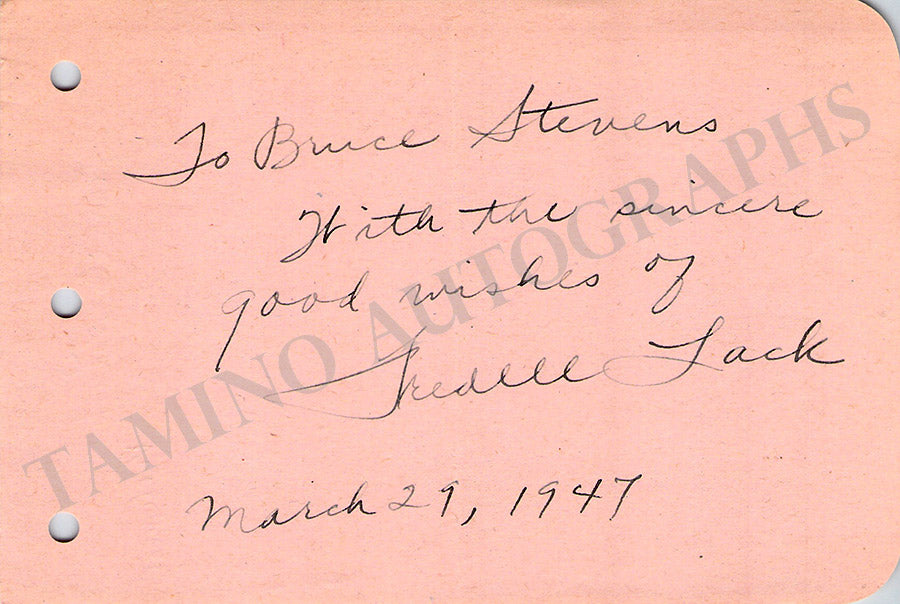 To Bruce Stevens
With the sincere
good wishes of
Fredell Lack
March 29, 1947
TAMINO AUTOGRAPHS